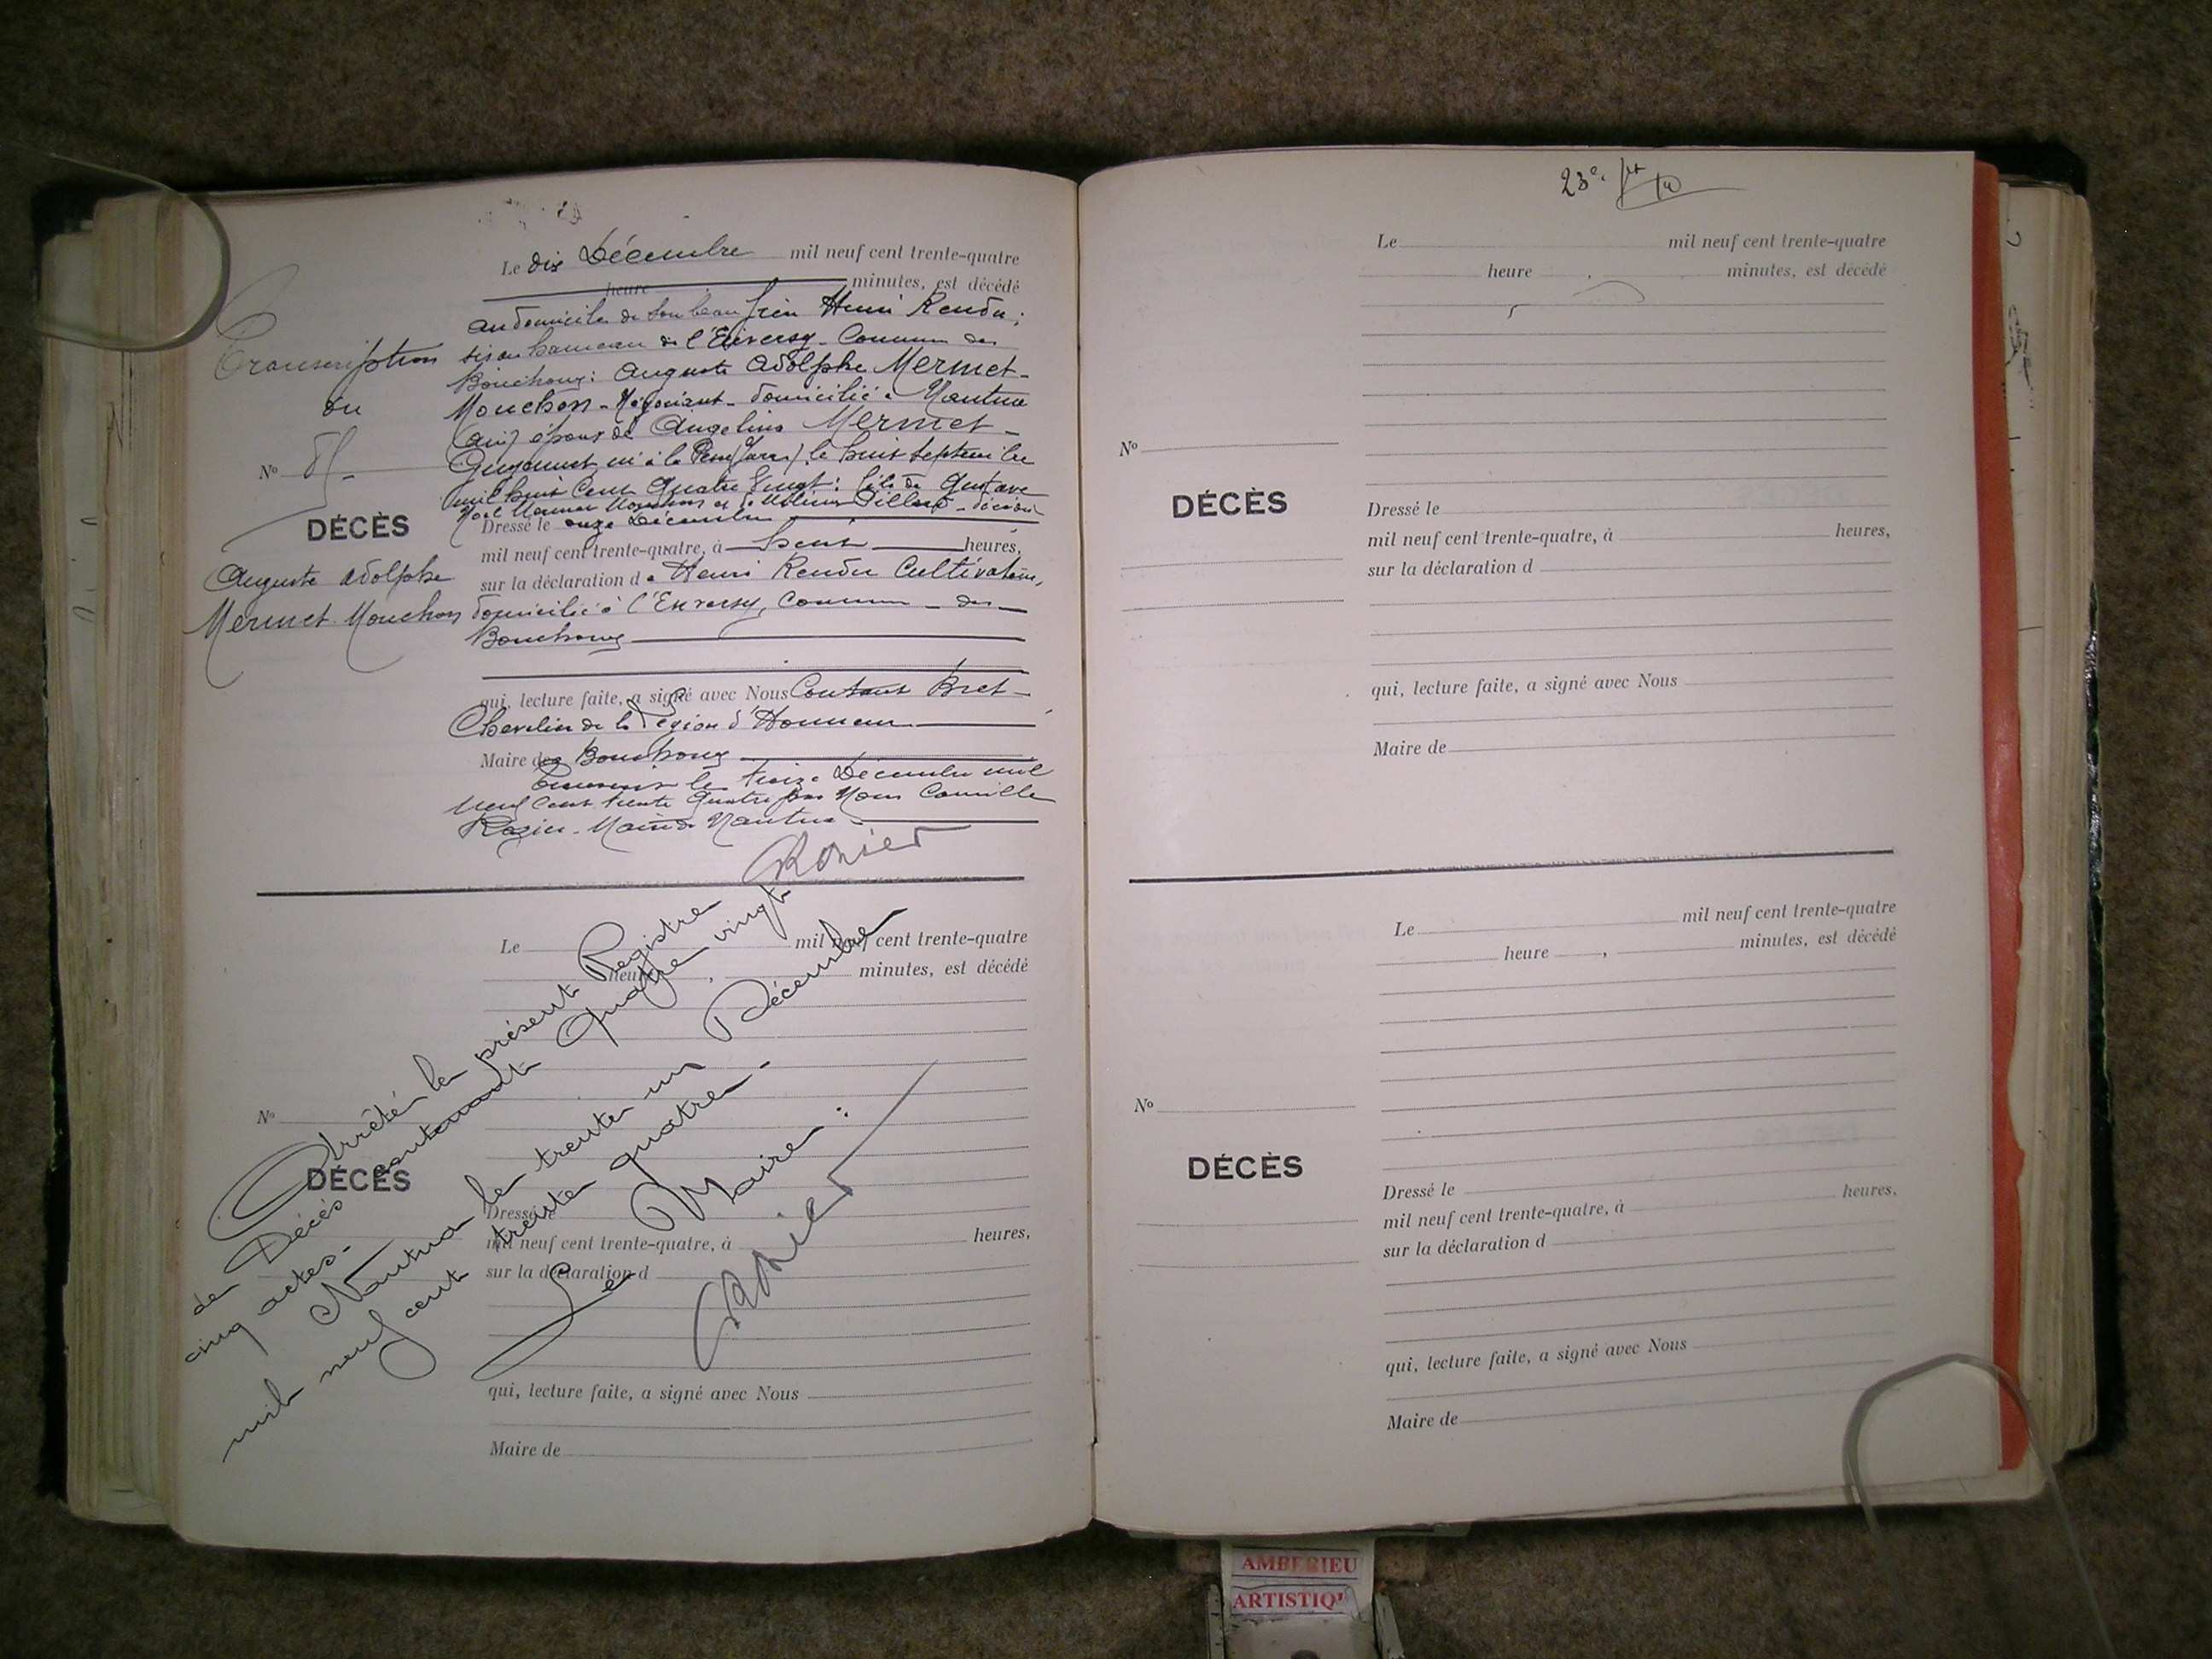 Le dix Décembre mil neuf cent trente-quatre
heure minutes, est décédé
au domicile de son beau frère Henri Rendu,
sis au hameau de l'Enversy - Commune des
Bouchoux: Auguste Adolphe Mermet-
Mouchon - Négociant - domicilié à Nantua
(Ain) époux de Angelina Mermet-
Guyennet né à la Pesse (Jura), le huit Septembre
mil huit Cent Quatre Vingt: fils de Gustave
Noël Mermet Mouchon et de - décédés
Dressé le onze Décembre
mil neuf cent trente-quatre, à heures,
sur la déclaration de Henri Rendu Cultivateur,
domicilié à l'Enversy, Commune - des -
Bouchoux
qui, lecture faite, a signé avec Nous Constant Bret -
Chevalier de la Légion d'Honneur
Maire des Bouchoux
Transcrit le treize Décembre mil
neuf Cent trente Quatre par Nous Camille
Rozier - Maire de Nantua
Rozier
Transcription
du
No 85 -
DÉCÈS
Auguste Adolphe
Mermet-Mouchon
Le mil neuf cent trente-quatre
heure , minutes, est décédé
No
DÉCÈS
Dressé le
mil neuf cent trente-quatre, à heures,
sur la déclaration d
qui, lecture faite, a signé avec Nous
Maire de
Arrêté le présent Registre
de Décès contenant Quatre vingt
cinq actes -
Nantua le trente un Décembre
mil neuf cent trente quatre -
Le Maire :
Rozier
23e
Le mil neuf cent trente-quatre
heure , minutes, est décédé
No
DÉCÈS
Dressé le
mil neuf cent trente-quatre, à heures,
sur la déclaration d
qui, lecture faite, a signé avec Nous
Maire de
Le mil neuf cent trente-quatre
heure , minutes, est décédé
No
DÉCÈS
Dressé le
mil neuf cent trente-quatre, à heures,
sur la déclaration d
qui, lecture faite, a signé avec Nous
Maire de
AMBERIEU
ARTISTIQ